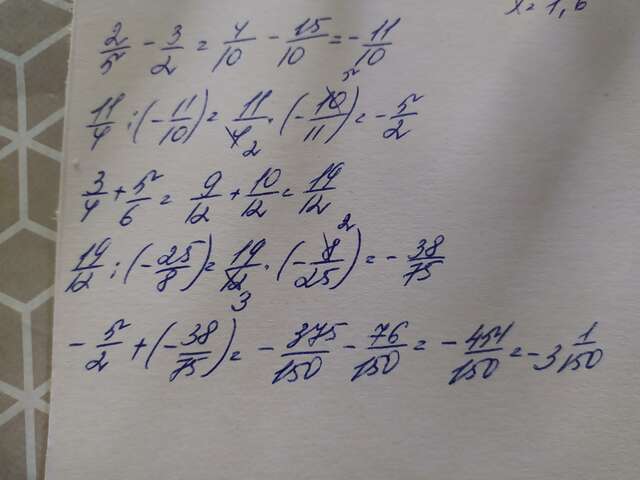 x = 1,6
2/5 - 3/2 = 4/10 - 15/10 = - 11/10
11/4 : (- 11/10) = 11/4 2 · (- 10/11 5) = - 5/2
3/4 + 5/6 = 9/12 + 10/12 = 19/12
19/12 : (- 25/8) = 19/12 3 · (- 8/25 2) = - 38/75
- 5/2 + (- 38/75) = - 375/150 - 76/150 = - 451/150 = - 3 1/150